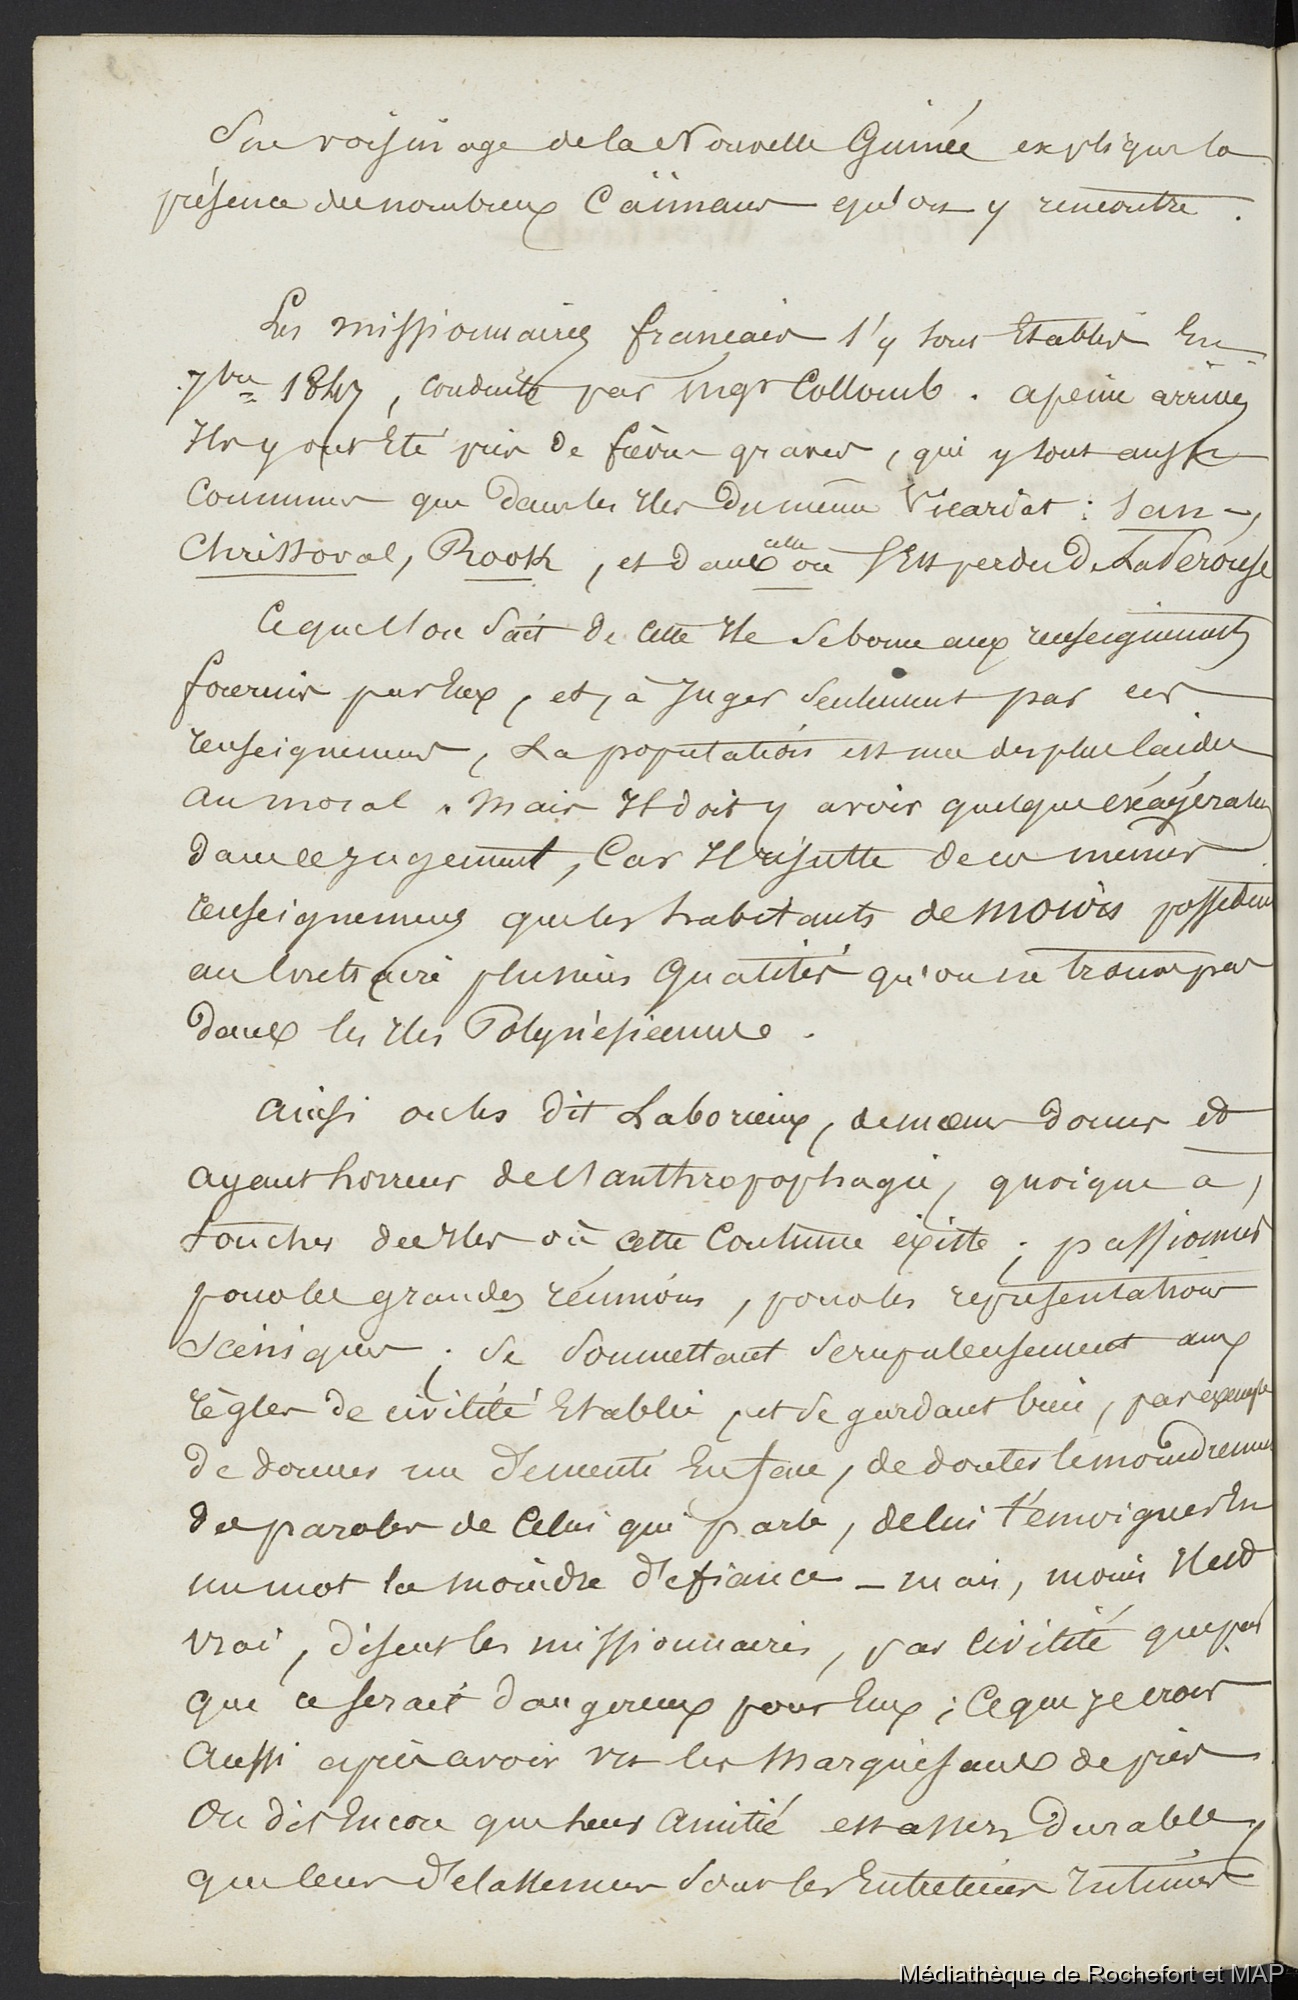 Son voisinage de la Nouvelle Guinée explique la
présence de nombreux Caïmans qu'on y rencontre.
Les missionnaires francais s'y sont Etablis En
7bre 1847, conduits par Mgr Collomb. apeine arrivés
Ils y ont Eté pris de fièvres graves, qui y sont aussi
communes que dans les Iles du même Vicariat : San-
Christoval, Rook, et dans celle où s'Est perdu De LaPérouse
Ce que l'on Sait de cette Ile se borne aux renseignements
fournis par Eux, et, à Juger seulement par ces
renseignemens, La population est une des plus laides
au moral. Mais Il doit y avoir quelque éxagération
dans ce jugement, Car Il résulte de ces mêmes
renseignemens que les habitants de Moiöis possèdent
au contraire plusieurs Qualités qu'on ne trouve pas
dans les Iles Polynésiennes.
Ainsi on les dit Laborieux, de mœurs douces et
ayant horreur de l'anthropophagie, quoique à
toucher des Iles où cette Coutume éxiste ; passionnés
pour les grandes réunions, pour les représentations
Scéniques ; se soumettant scrupuleusement aux
règles de civilité Etablie, et se gardant bien, par éxemple
de donner un démenti En face, de douter le moindrement
des paroles de Celui qui parle, de lui témoigner En
un mot la moindre défiance - mais, moins Il est
vrai, disent les missionnaires, par civilité que par
que ce serait dangereux pour Eux ; Ce que je crois
Aussi après avoir vu les Marquesans de près
On dit Encore que leur Amitié est assez Durable,
que leurs délassemens sont les Entretiens Intimes
Médiathèque de Rochefort et MAP